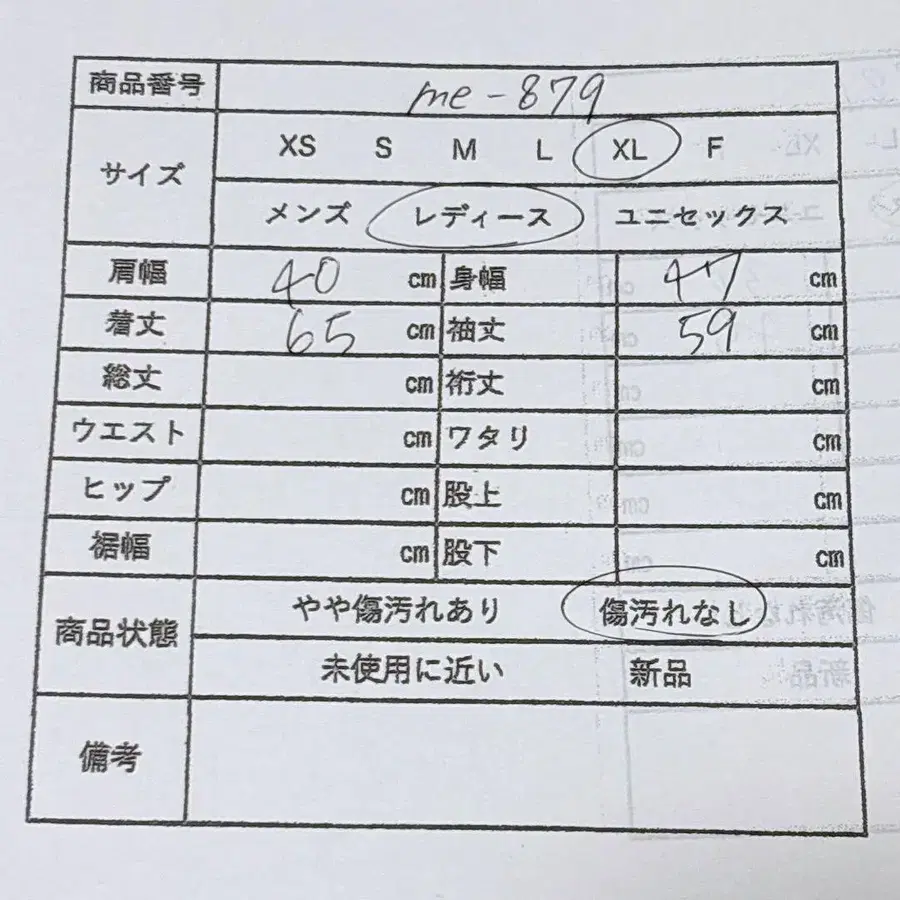 商品番号 me-879
サイズ XS S M L XL F
メンズ レディース ユニセックス
肩幅 40 cm 身幅 47 cm
着丈 65 cm 袖丈 59 cm
総丈 cm 裄丈 cm
ウエスト cm ワタリ cm
ヒップ cm 股上 cm
裾幅 cm 股下 cm
商品状態 やや傷汚れあり 傷汚れなし
未使用に近い 新品
備考